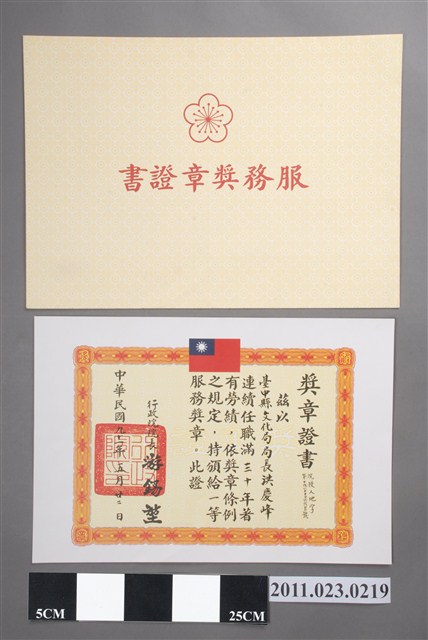 服務獎章證書
獎章證書
茲以
臺中縣文化局局長洪慶峰
連續任職滿三十年著
有勞績，依獎章條例
之規定，特頒給一等
服務獎章。此證
行政院院長 游錫堃
中華民國九十二年五月廿二日
5CM
25CM
2011.023.0219